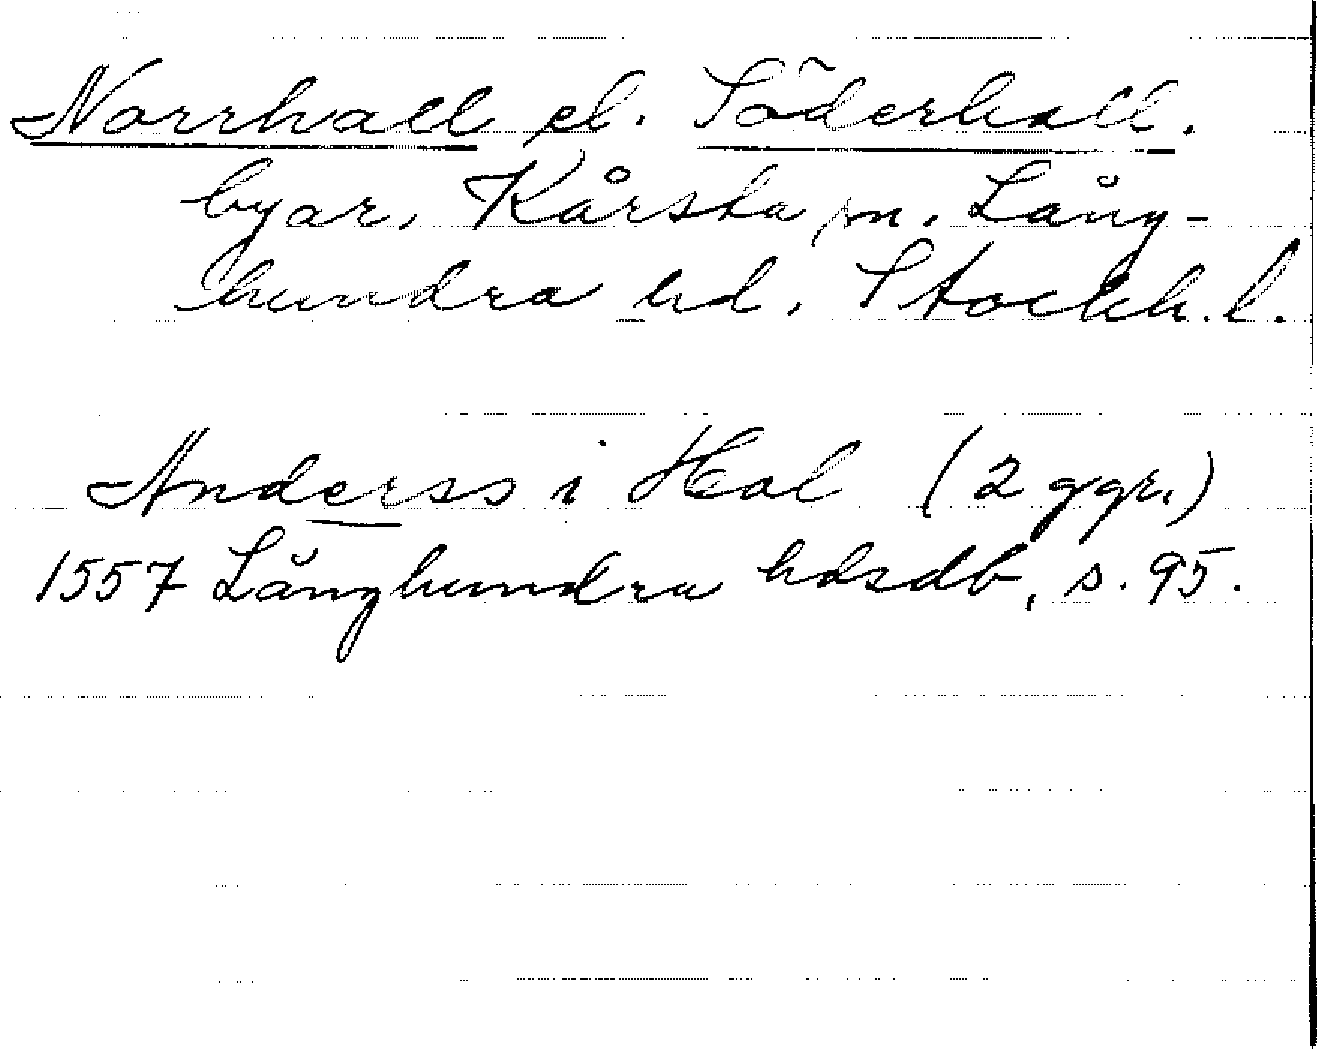 Norrhall el. Söderhall.
byar, Kårsta sn. Lång-
hundra hd. Stockh. l.
Anderss i Hal (2 ggr.)
1557 Långhundra hdsdb, s. 95.